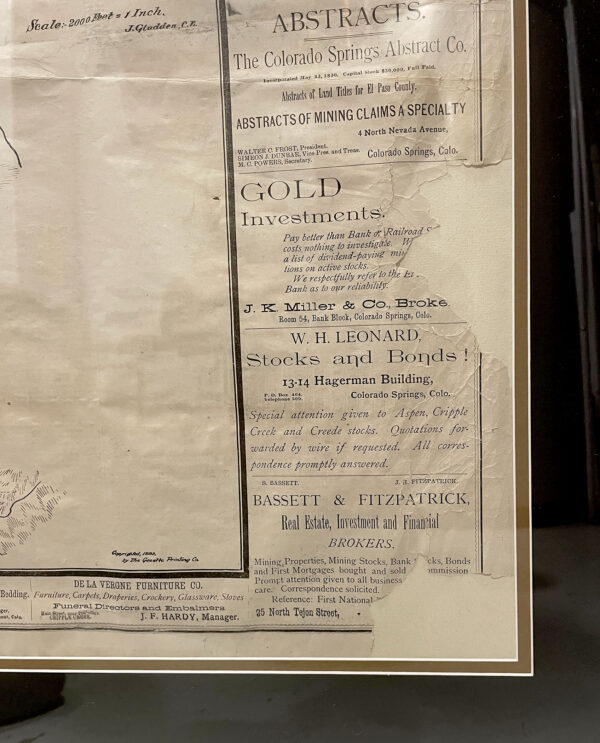 Scale:- 2000 Feet = 1 Inch.
J. Gladden, C.E.
ABSTRACTS.
The Colorado Springs Abstract Co.
Capital Stock $30,000, Full Paid.
Abstracts of Land Titles for El Paso County.
ABSTRACTS OF MINING CLAIMS A SPECIALTY
4 North Nevada Avenue,
WALTER C. FROST, President.
SIMEON J. DUNBAR, Vice-Pres. and Treas.
M. C. POWERS, Secretary.
Colorado Springs, Colo.
GOLD
Investments.
Pay better than Bank or Railroad S
costs nothing to investigate. W
a list of dividend-paying
tions on active stocks.
We respectfully refer to the El
Bank as to our reliability.
J. K. Miller & Co., Broke
Room 54, Bank Block, Colorado Springs, Colo.
W. H. LEONARD,
Stocks and Bonds!
13-14 Hagerman Building,
P. O. Box 464.
Telephone
Colorado Springs, Colo.
Special attention given to Aspen, Cripple
Creek and Creede stocks. Quotations for-
warded by wire if requested. All corres-
pondence promptly answered.
BASSETT.
FITZPATRICK.
BASSETT & FITZPATRICK,
Real Estate, Investment and Financial
BROKERS.
Mining Properties, Mining Stocks, Bank cks, Bonds
and First Mortgages bought and sold ommission
Prompt attention given to all business
care. Correspondence solicited.
Reference: First National
25 North Tejon Street,
Copyright,
by The Gazette Printing Co.
DE LA VERGNE FURNITURE CO.
Bedding. Furniture, Carpets, Draperies, Crockery, Glassware, Stoves
Funeral Directors and Embalmers
CRIPPLE CREEK.
J. F. HARDY, Manager.